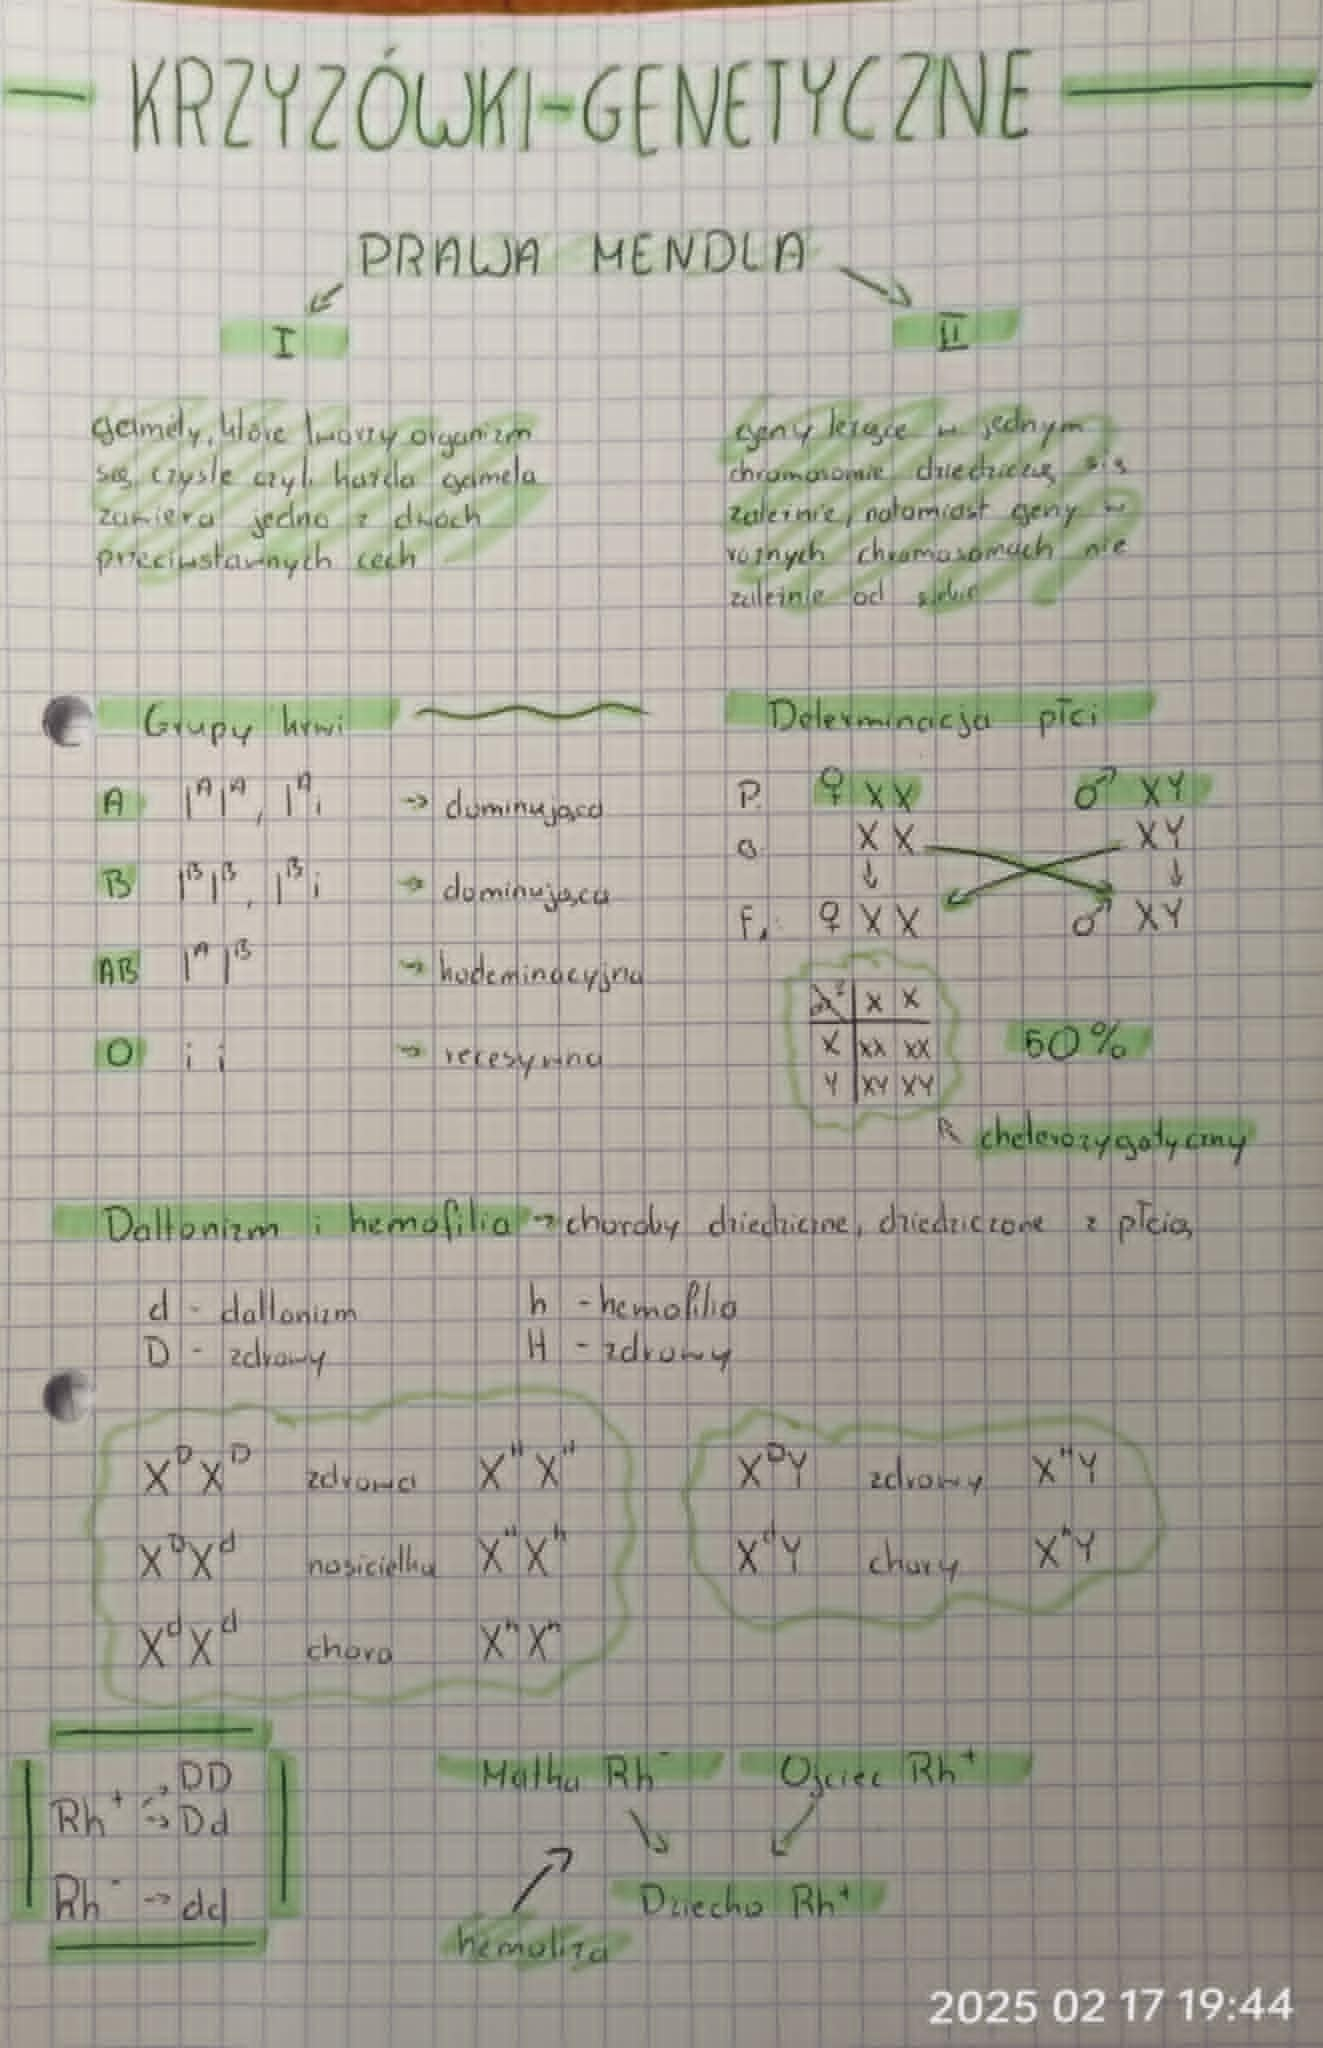 KRZYZÓWKI-GENETYCZNE
PRAWA MENDLA
I
gamety, które tworzy organizm
są czyste czyli każda gameta
zawiera jedną z dwóch
przeciwstawnych cech
II
geny leżące w jednym
chromosomie dziedziczą się
zależnie, natomiast geny w
rożnych chromosomach nie
zależnie od siebie
Grupy krwi
A IᴬIᴬ, Iᴬi → dominująca
B IᴮIᴮ, Iᴮi → dominująca
AB IᴬIᴮ → kodominacyjna
O i i → recesywna
Determinacja płci
P. ♀ XX ♂ XY
G X X XY
F₁: ♀ XX ♂ XY
X X
X XX XX
Y XY XY
50%
cheterozygotyczny
Daltonizm i hemofilia → choroby dziedziczne, dziedziczone z płcią
d - daltonizm h - hemofilia
D - zdrowy H - zdrowy
XᴰXᴰ zdrowa XᴴXᴴ
XᴰXᵈ nosicielka XᴴXʰ
XᵈXᵈ chora XʰXʰ
XᴰY zdrowy XᴴY
XᵈY chory XʰY
Rh⁺ → DD
→ Dd
Rh⁻ → dd
Matka Rh⁻ Ojciec Rh⁺
Dziecko Rh⁺
hemoliza
2025 02 17 19:44